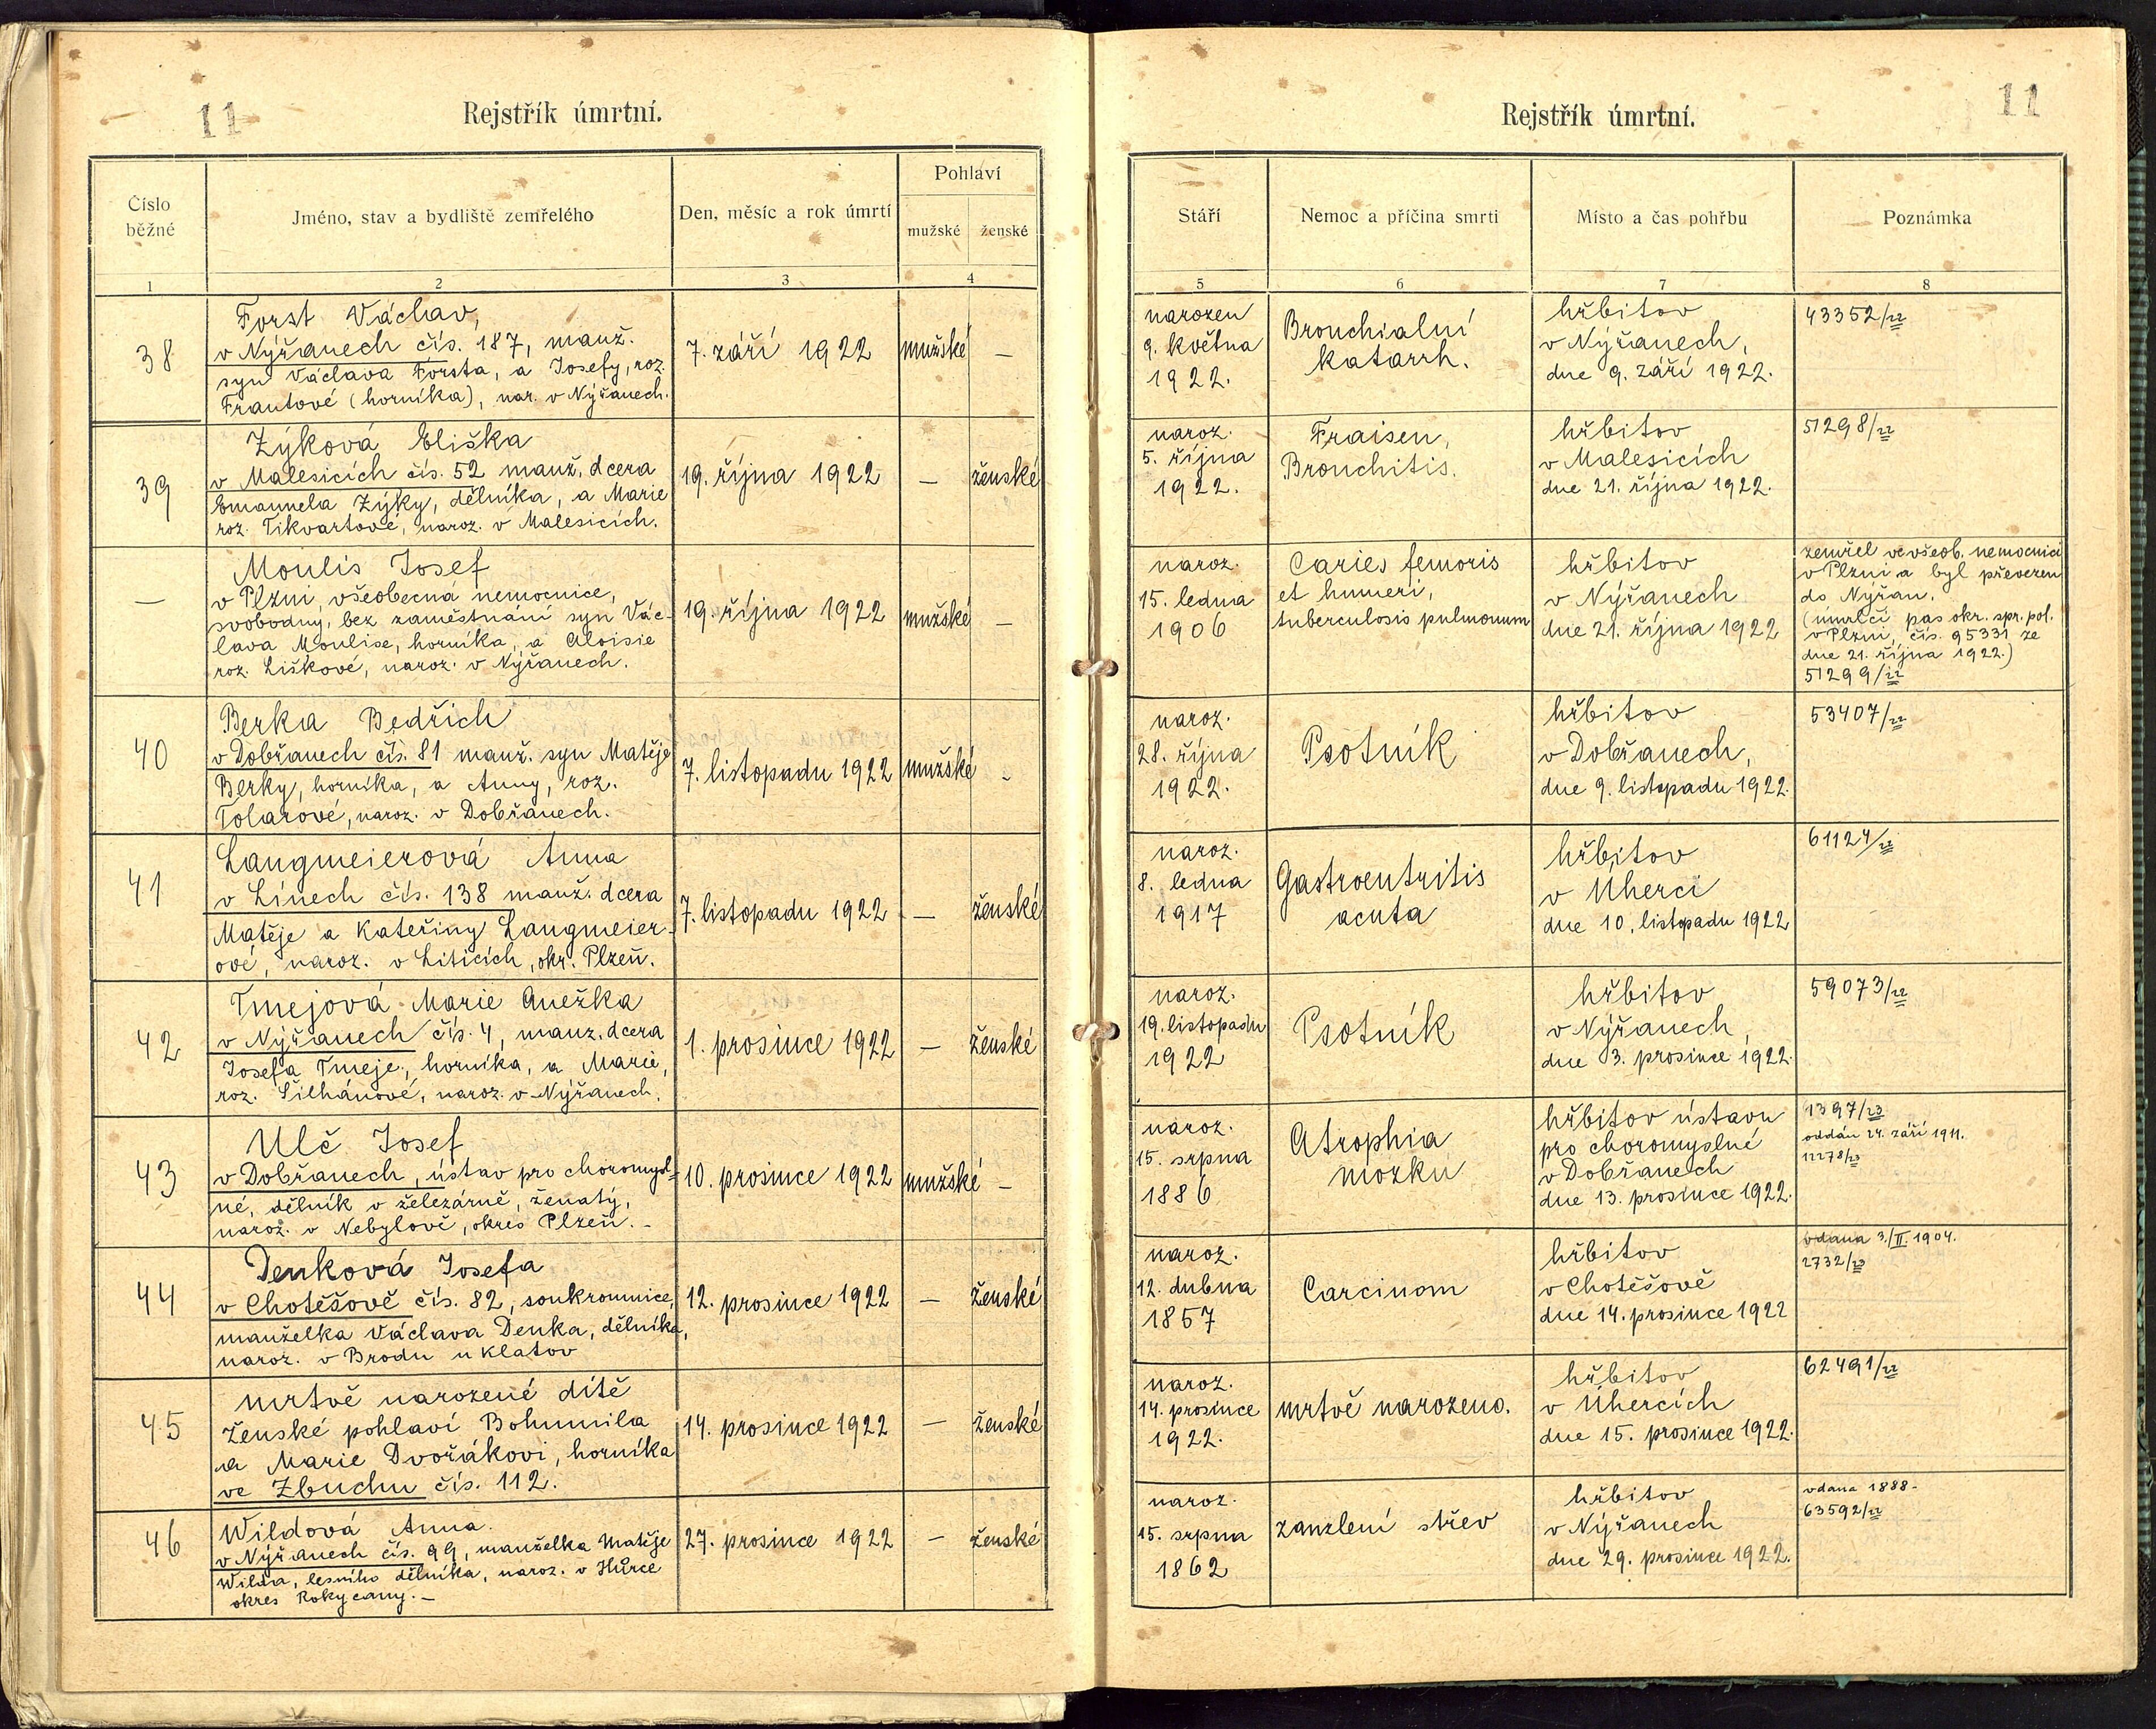 11
Rejstřík úmrtní.
Číslo
běžné
Jméno, stav a bydliště zemřelého
Den, měsíc a rok úmrtí
Pohlaví
mužské
ženské
1
2
3
4
38
Forst Václav,
v Nýřanech čís. 187, manž.
syn Václava Forsta, a Josefy, roz.
Frantové (horníka), nar. v Nýřanech.
7. září 1922
mužské
—
39
Zýková Eliška
v Malesicích čís. 52 manž. dcera
Emanuela Zýky, dělníka, a Marie
roz. Tikvartové, naroz. v Malesicích.
19. října 1922
—
ženské
—
Moulis Josef
v Plzni, všeobecná nemocnice,
svobodný, bez zaměstnání syn Vác-
lava Moulise, horníka, a Aloisie
roz. Liškové, naroz. v Nýřanech.
19. října 1922
mužské
—
40
Berka Bedřich
v Dobřanech čís. 81 manž. syn Matěje
Berky, horníka, a Anny, roz.
Tolarové, naroz. v Dobřanech.
7. listopadu 1922
mužské
-
41
Langmeierová Anna
v Línech čís. 138 manž. dcera
Matěje a Kateřiny Langmeier-
ové, naroz. v Liticích, okr. Plzeň.
7. listopadu 1922
—
ženské
42
Tmejová Marie Anežka
v Nýřanech čís. 4, manz. dcera
Josefa Tmeje, horníka, a Marie,
roz. Šilhánové, naroz. v Nýřanech.
1. prosince 1922
—
ženské
43
Ulč Josef
v Dobřanech, ústav pro choromysl=
né, dělník v železárně, ženatý,
naroz. v Nebylově, okres Plzeň. -
10. prosince 1922
mužské
—
44
Denková Josefa
v Chotěšově čís. 82, soukromnice,
manželka Václava Denka, dělníka,
naroz. v Brodu u Klatov
12. prosince 1922
—
ženské
45
mrtvě narozené dítě
ženské pohlaví Bohumila
a Marie Dvořákovi, horníka
ve Zbuchu čís. 112.
14. prosince 1922
—
ženské
46
Wildová Anna.
v Nýřanech čís. 99, manželka Matěje
Wilda, lesního dělníka, naroz. v Hůrce
okres Rokycany. -
27. prosince 1922
—
ženské
11
Rejstřík úmrtní.
Stáří
Nemoc a příčina smrti
Místo a čas pohřbu
Poznámka
5
6
7
8
narozen
9. května
1922.
Bronchialní
katarrh.
hřbitov
v Nýřanech,
dne 9. září 1922.
43352/22
naroz.
5. října
1922.
Fraisen,
Bronchitis.
hřbitov
v Malesicích
dne 21. října 1922.
51298/22
naroz.
15. ledna
1906
Caries femoris
et humeri,
tuberculosis pulmonum
hřbitov
v Nýřanech
dne 21. října 1922
zemřel ve všeob. nemocnici
v Plzni a byl převezen
do Nýřan.
(úmrlčí pas okr. spr. pol.
v Plzni, čís. 95331 ze
dne 21. října 1922.)
51299/22
naroz.
28. října
1922.
Psotník
hřbitov
v Dobřanech,
dne 9. listopadu 1922.
53407/22
naroz.
8. ledna
1917
Gastroentritis
acuta
hřbitov
v Úherci
dne 10. listopadu 1922
61124/22
naroz.
19. listopadu
1922
Psotník
hřbitov
v Nýřanech,
dne 3. prosince 1922.
59073/22
naroz.
15. srpna
1886
Atrophia
mozku
hřbitov ústavu
pro choromyslné
v Dobřanech
dne 13. prosince 1922.
1397/23
oddán 24. září 1911.
12278/23
naroz.
12. dubna
1857
Carcinom
hřbitov
v Chotěšově
dne 14. prosince 1922
vdana 3./II. 1904.
2732/23
naroz.
14. prosince
1922.
mrtvě narozeno.
hřbitov
v Úhercích
dne 15. prosince 1922.
62491/22
naroz.
15. srpna
1862
zauzlení střev
hřbitov
v Nýřanech
dne 29. prosince 1922.
vdana 1888-
63592/22